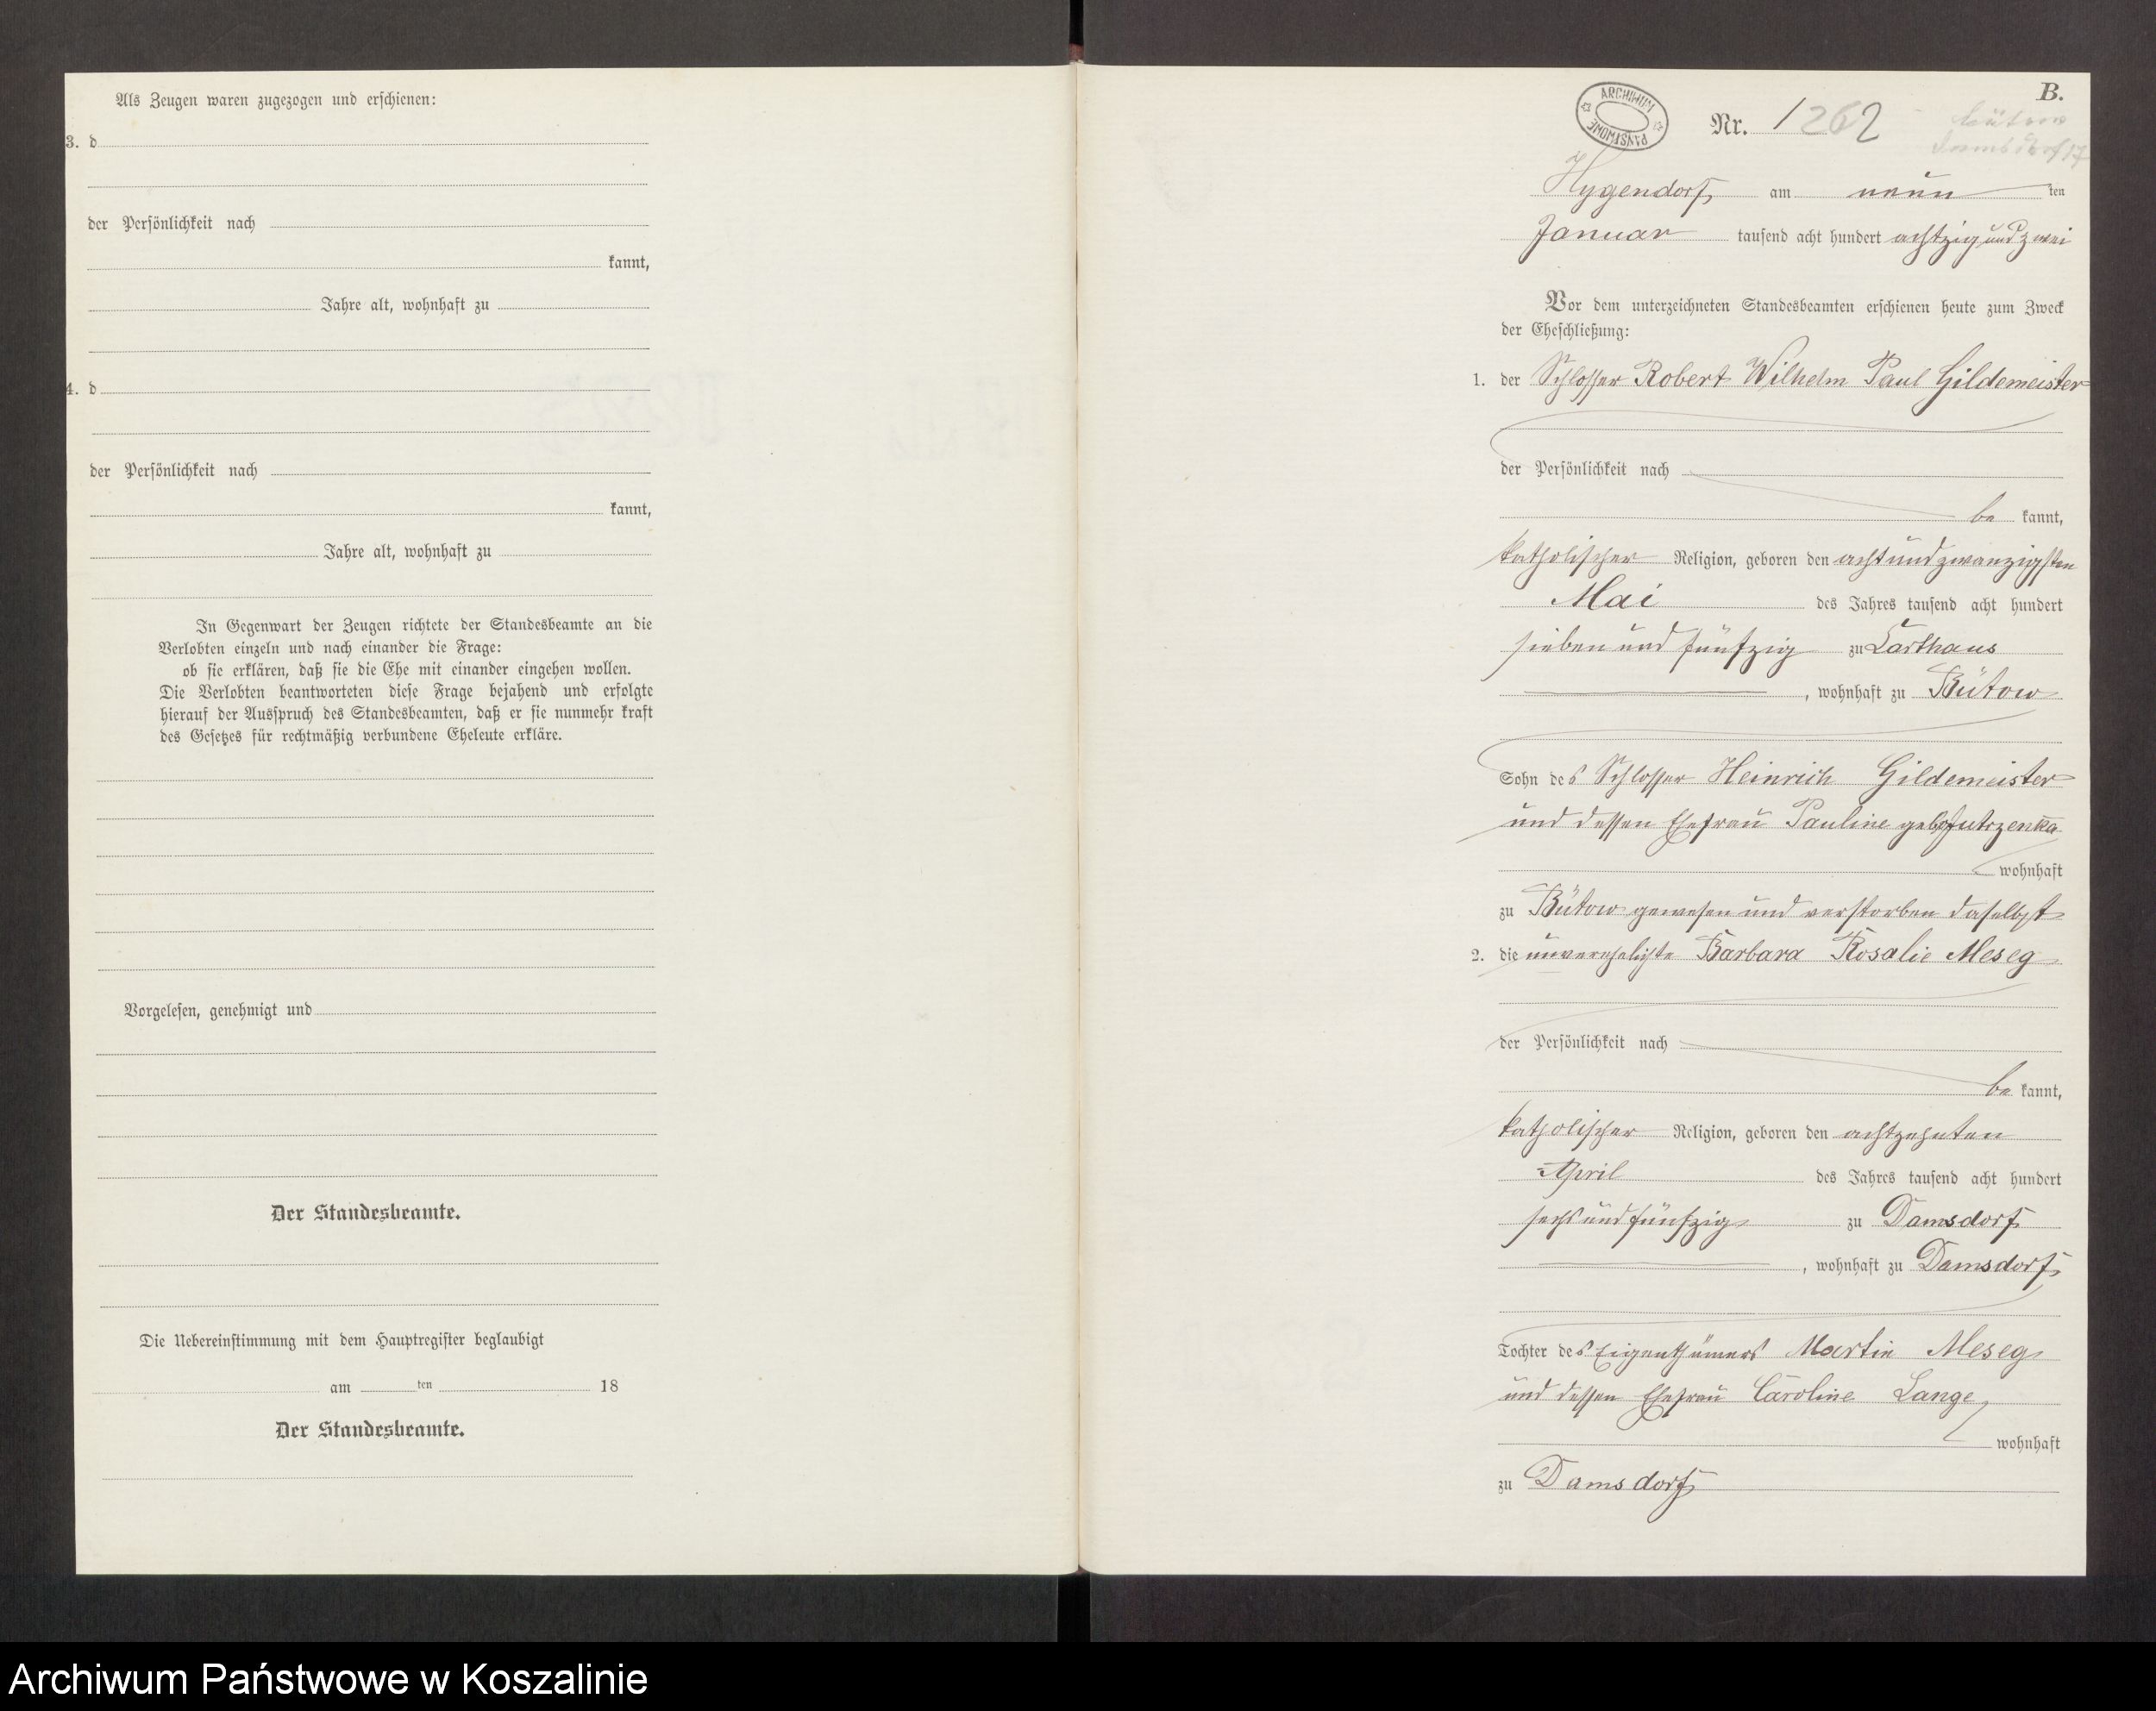 Als Zeugen waren zugezogen und erschienen:
3. d
der Persönlichkeit nach
kannt,
Jahre alt, wohnhaft zu
4. d
der Persönlichkeit nach
kannt,
Jahre alt, wohnhaft zu
In Gegenwart der Zeugen richtete der Standesbeamte an die
Verlobten einzeln und nach einander die Frage:
ob sie erklären, daß sie die Ehe mit einander eingehen wollen.
Die Verlobten beantworteten diese Frage bejahend und erfolgte
hierauf der Ausspruch des Standesbeamten, daß er sie nunmehr kraft
des Gesetzes für rechtmäßig verbundene Eheleute erkläre.
Vorgelesen, genehmigt und
Der Standesbeamte.
Die Uebereinstimmung mit dem Hauptregister beglaubigt
am ten 18
Der Standesbeamte.
B.
ARCHIWUM PAŃSTWOWE
Nr. 1 262
Bütow
Damsdorf 17
Hygendorf am neun ten
Januar tausend acht hundert achtzig und zwei
Vor dem unterzeichneten Standesbeamten erschienen heute zum Zweck
der Eheschließung:
1. der Schlosser Robert Wilhelm Paul Gildemeister
der Persönlichkeit nach
be kannt,
katholischer Religion, geboren den acht und zwanzigsten
Mai des Jahres tausend acht hundert
sieben und fünfzig zu Carthaus
, wohnhaft zu Bütow
Sohn des Schlosser Heinrich Gildemeister
und dessen Ehefrau Pauline geb.
wohnhaft
zu Bütow gewesen und verstorben daselbst
2. die unverehelichte Barbara Rosalie Meseg
der Persönlichkeit nach
be kannt,
katholischer Religion, geboren den achtzehnten
April des Jahres tausend acht hundert
sechs und fünfzig zu Damsdorf
, wohnhaft zu Damsdorf
Tochter des Eigenthümers Martin Meseg
und dessen Ehefrau Caroline Lange
wohnhaft
zu Damsdorf
Archiwum Państwowe w Koszalinie